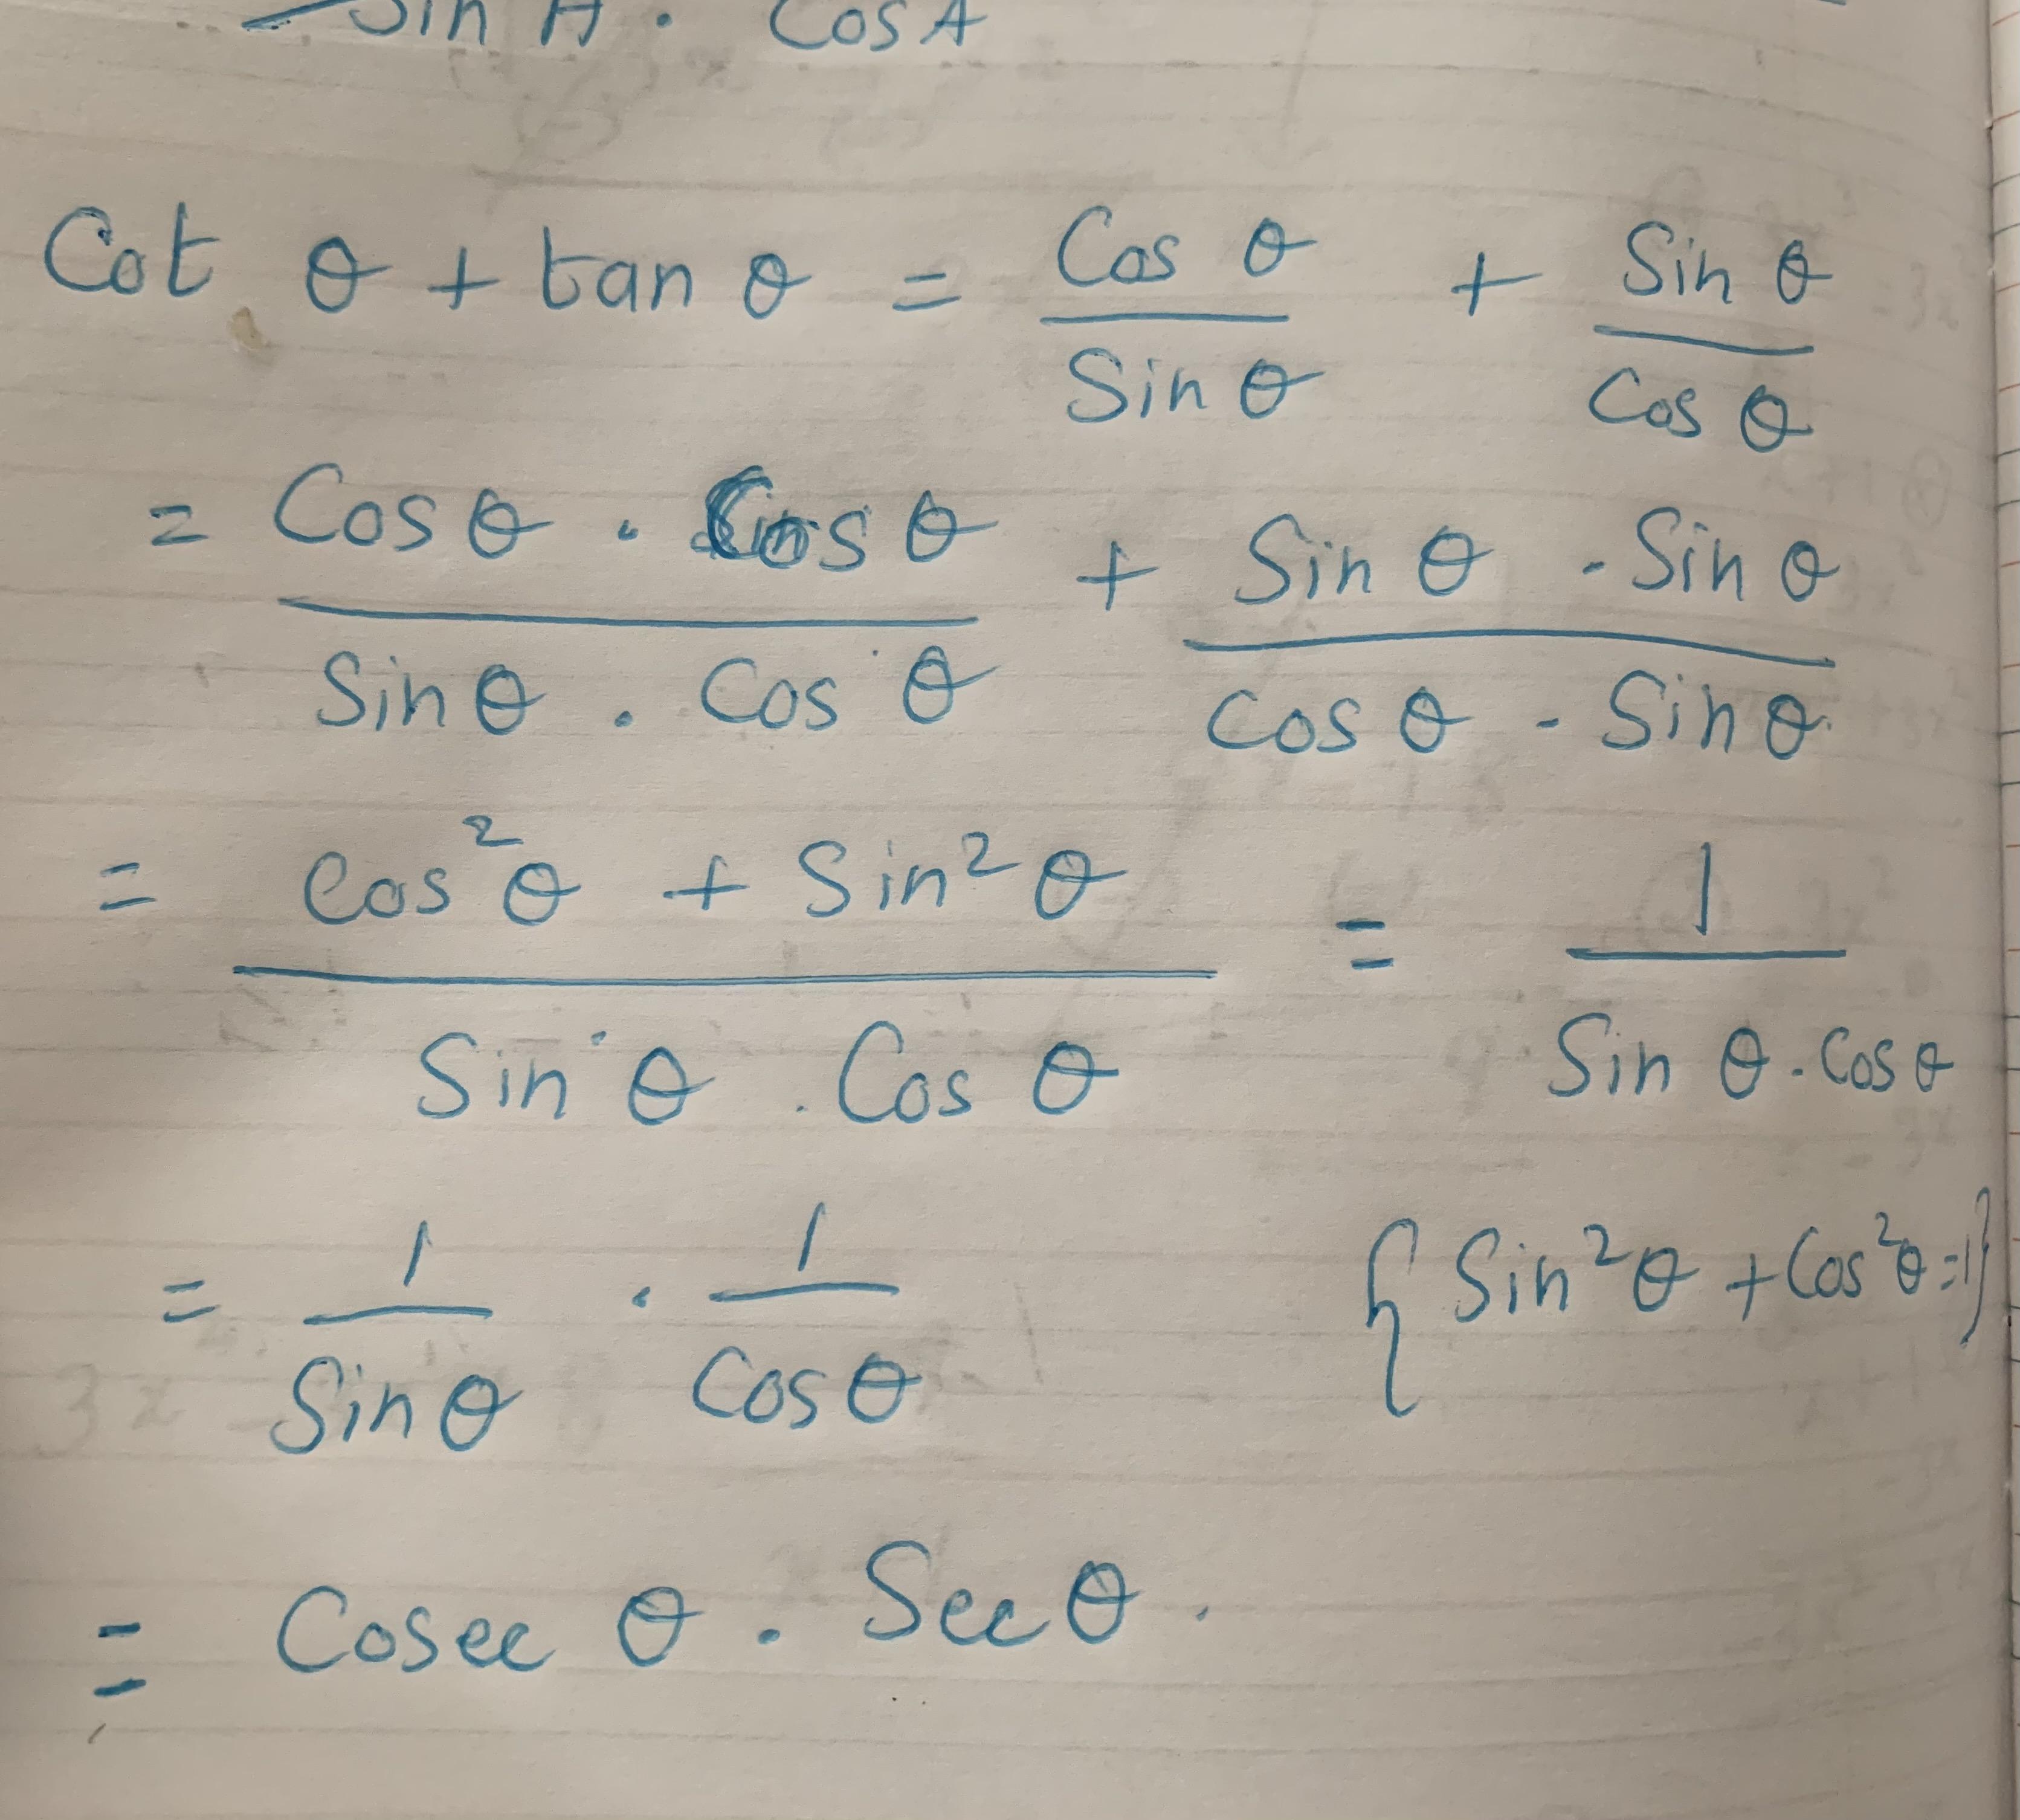 Sin A . Cos A
Cot θ + tan θ = Cos θ / Sin θ + Sin θ / Cos θ
= Cos θ . Cos θ / Sin θ . Cos θ + Sin θ . Sin θ / Cos θ . Sin θ
= Cos²θ + Sin²θ / Sin θ . Cos θ = 1 / Sin θ . Cos θ
= 1 / Sin θ . 1 / Cos θ {Sin²θ + Cos²θ = 1}
= Cosec θ . Sec θ .